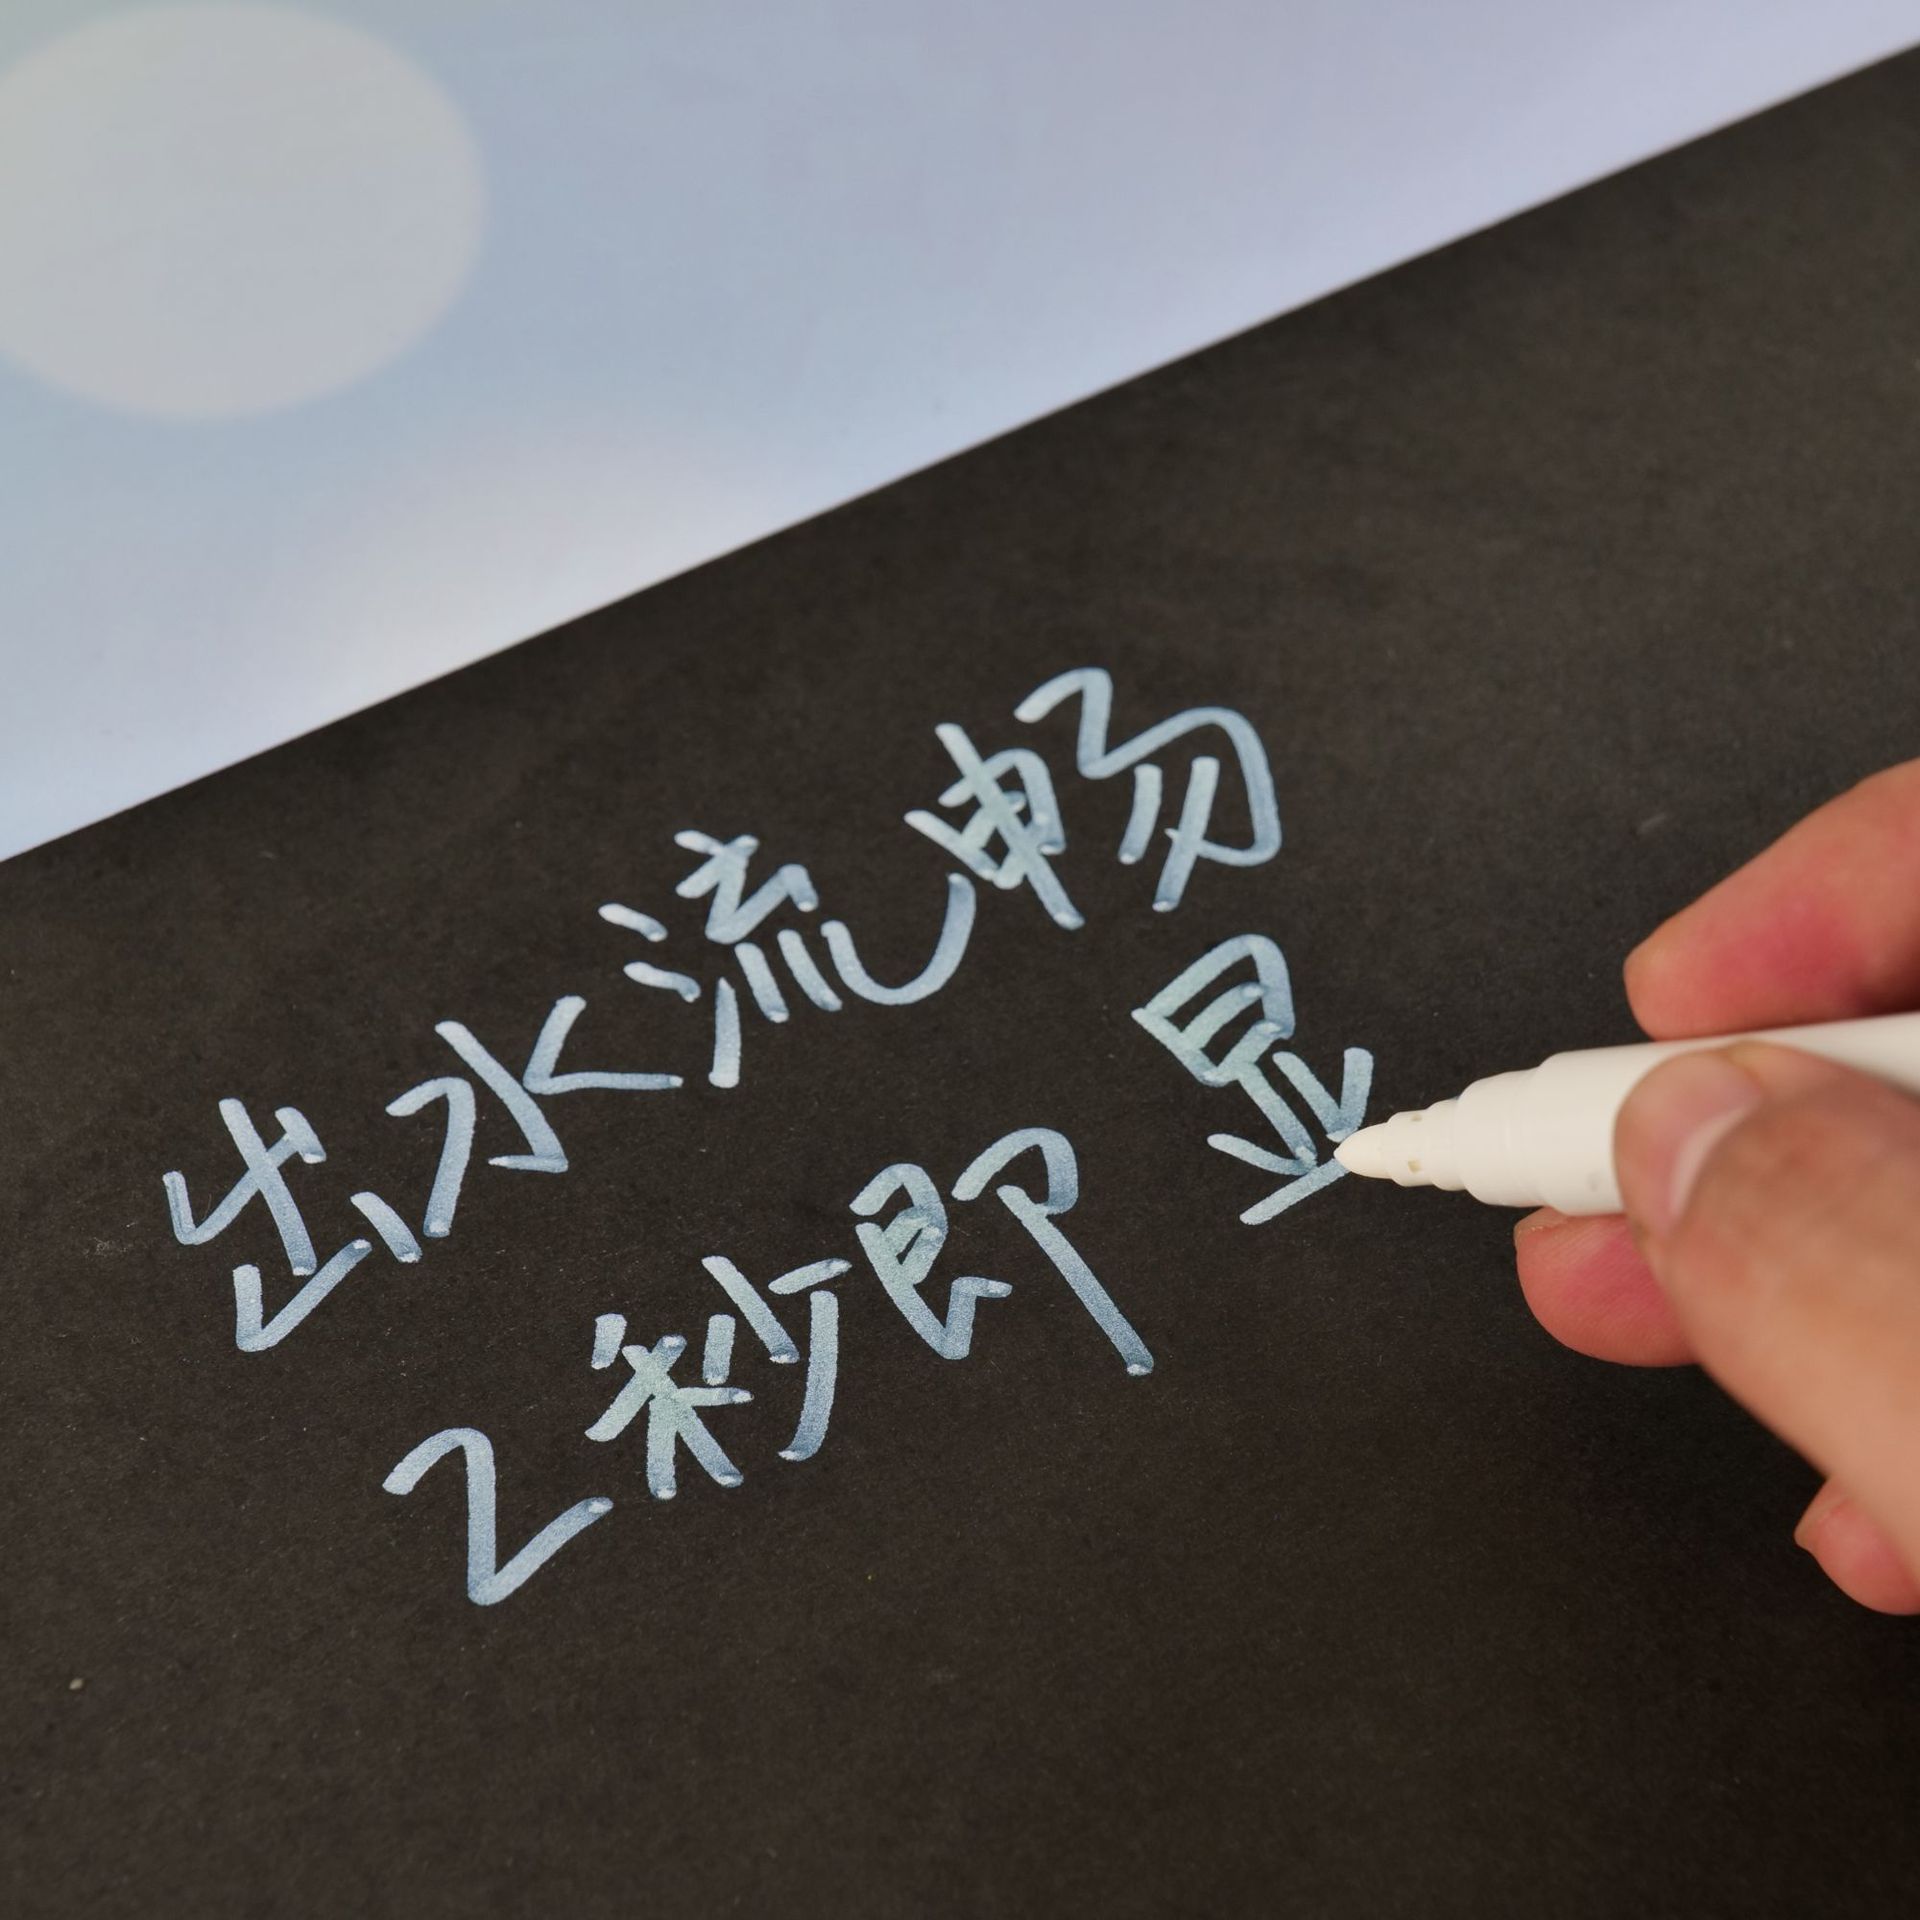 出水流畅
2秒即显